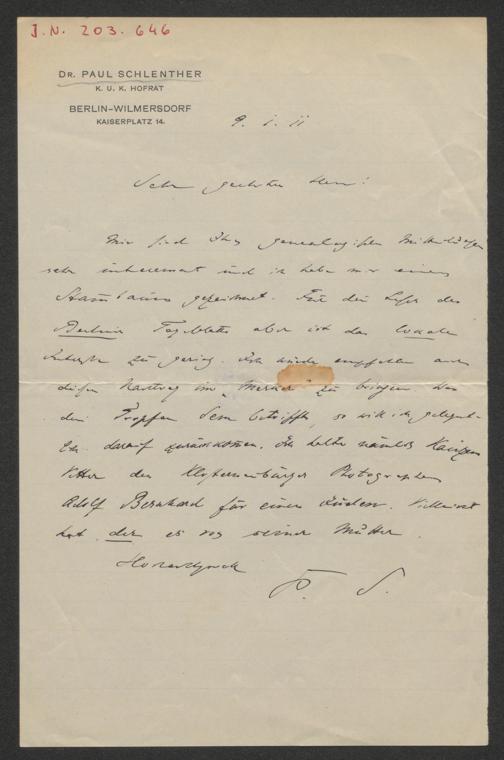 J.N. 203.646
DR. PAUL SCHLENTHER
K. U. K. HOFRAT
BERLIN-WILMERSDORF
KAISERPLATZ 14.
9. 1. 11
Sehr geehrter Herr!
Mir sind Ihre genealogischen Mitteilungen
sehr interessant und ich habe mir einen
Stammbaum gezeichnet. Für die Leser des
Berliner Tageblatts aber ist das lokale
Interesse zu gering. Ich würde empfehlen
diesen Nachtrag im "Merker" zu bringen. Was
den Tropfen Sem betrifft, so will ich gelegent-
lich darauf zurückkommen. Ich halte nämlich
Vetter den Klosterneuburger Photographen
Adolf Bernhard für einen Juden. Vielleicht
hat der es von seiner Mutter.
Hochachtend
P. S.